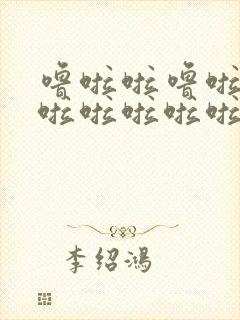 噜啦啦噜啦
啦啦啦啦啦
李绍鸿